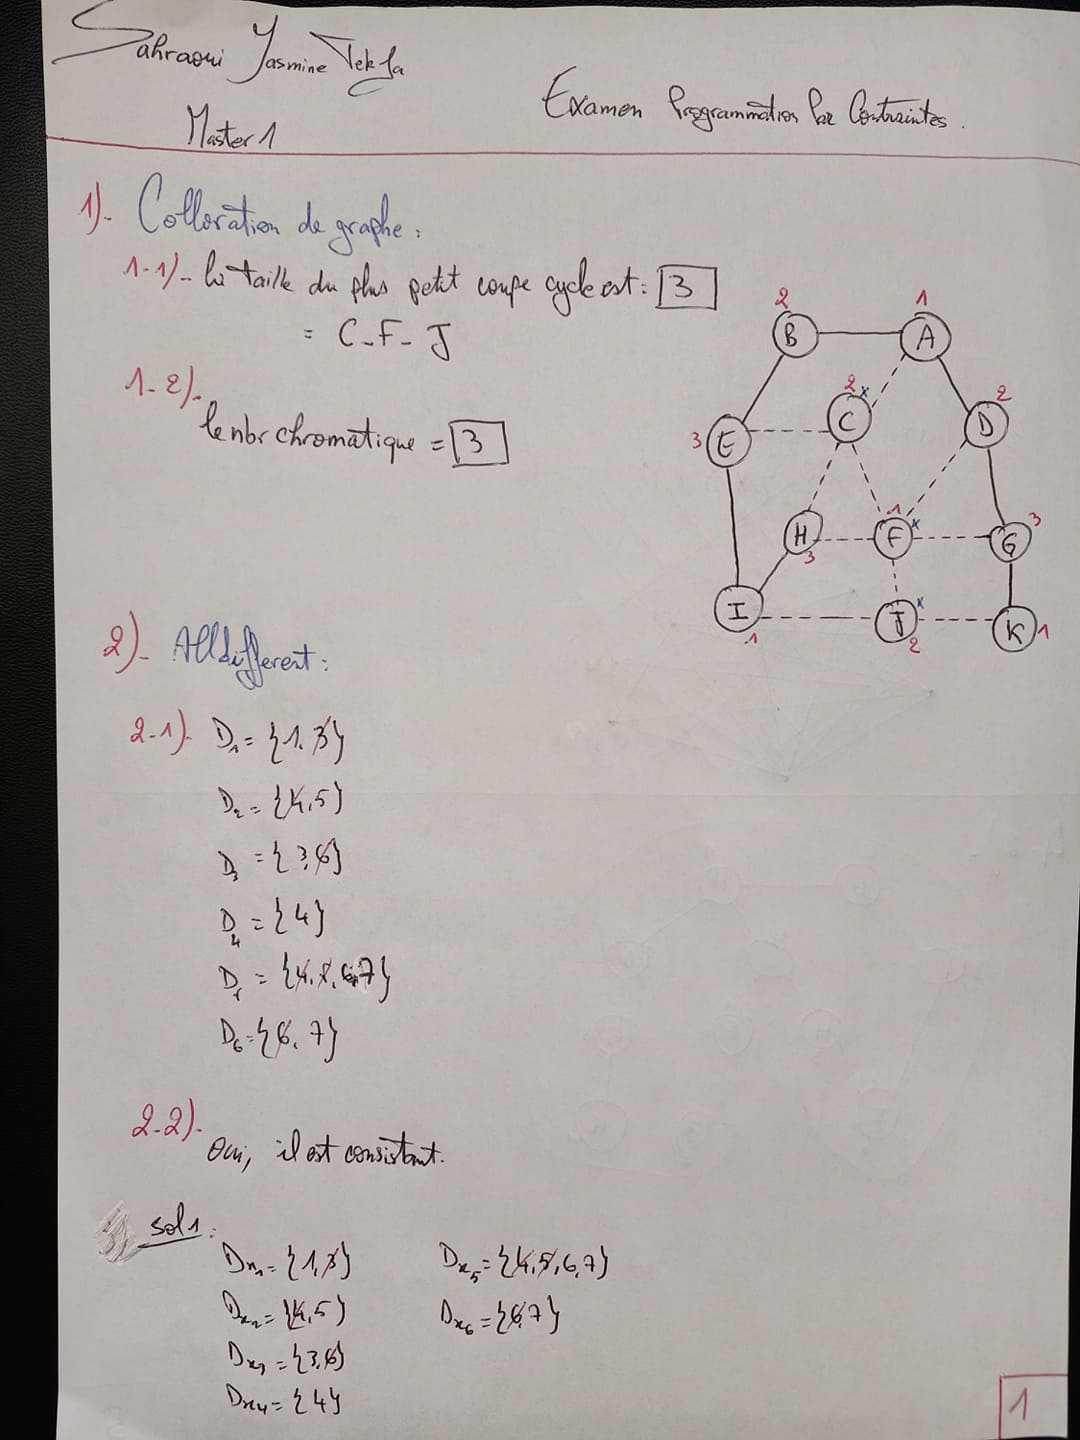 Sahraoui Yasmine Tekfa
Master 1
Examen Programmation Par Contraintes.
1)- Colloration de graphe :
1-1)- la taille du plus petit coupe cycle est : 3
= C-F-J
1-2)-
le nbr chromatique = 3
2 B 1 A
2 C x 2 D
3 E
H 3 1 F x 3 G
I 1 J x 2 K 1
2)- Alldifferent :
2-1)- D1 = {1, 3}
D2 = {4, 5}
D3 = {3, 6}
D4 = {4}
D5 = {4, 5, 6, 7}
D6 = {6, 7}
2-2)-
Oui, il est consistant.
sol 1 :
Dx1 = {1, 3} Dx5 = {4, 5, 6, 7}
Dx2 = {4, 5} Dx6 = {6, 7}
Dx3 = {3, 6}
Dx4 = {4}
1